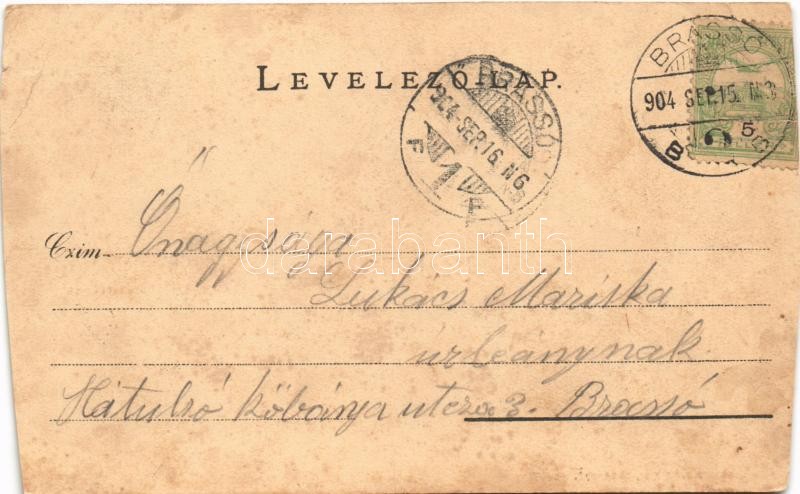 LEVELEZŐ-LAP.
BRASSÓ
904 SEP. 15. N 3
5
BRASSÓ
904 SEP. 16. N 6
F 1 F
Czim
Őnagysága
darabanth
Lukács Mariska
úrleánynak
Hátulsó kőbánya utcza 3. Brassó